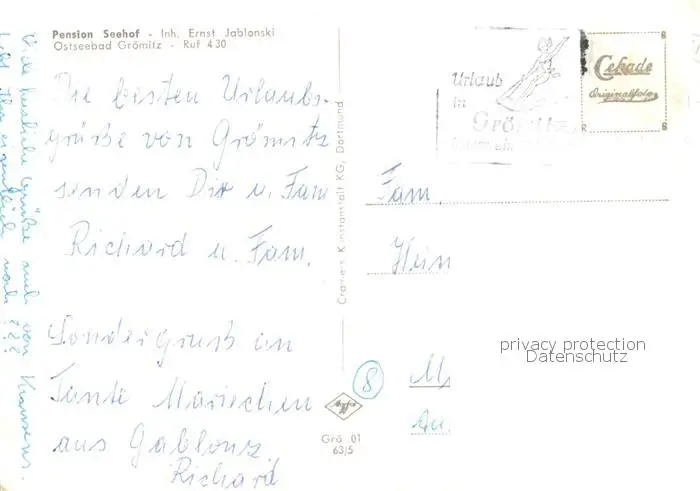 Pension Seehof - Inh. Ernst Jablonski
Ostseebad Grömitz - Ruf 430
Die besten Urlaubs-
grüße von Grömitz
senden Dir u. Fam.
Richard u. Fam.
Sondergruß an
Tante Mariechen
aus Gablonz
Richard
Viele herzliche Grüße auch von
Cramers Kunstanstalt KG, Dortmund
Grö 01
63/5
8
Urlaub
in
Grömitz
Cekade
Originalfoto
Fam.
Hein
privacy protection
Datenschutz